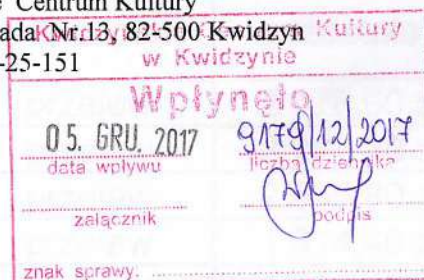 Centrum Kultury
ada Nr.13, 82-500 Kwidzyn
-25-151
Kwidzyńskie Centrum Kultury
w Kwidzynie
Wpłynęło
05. GRU. 2017
9179/12/2017
data wpływu
liczba dziennika
załącznik
podpis
znak sprawy.